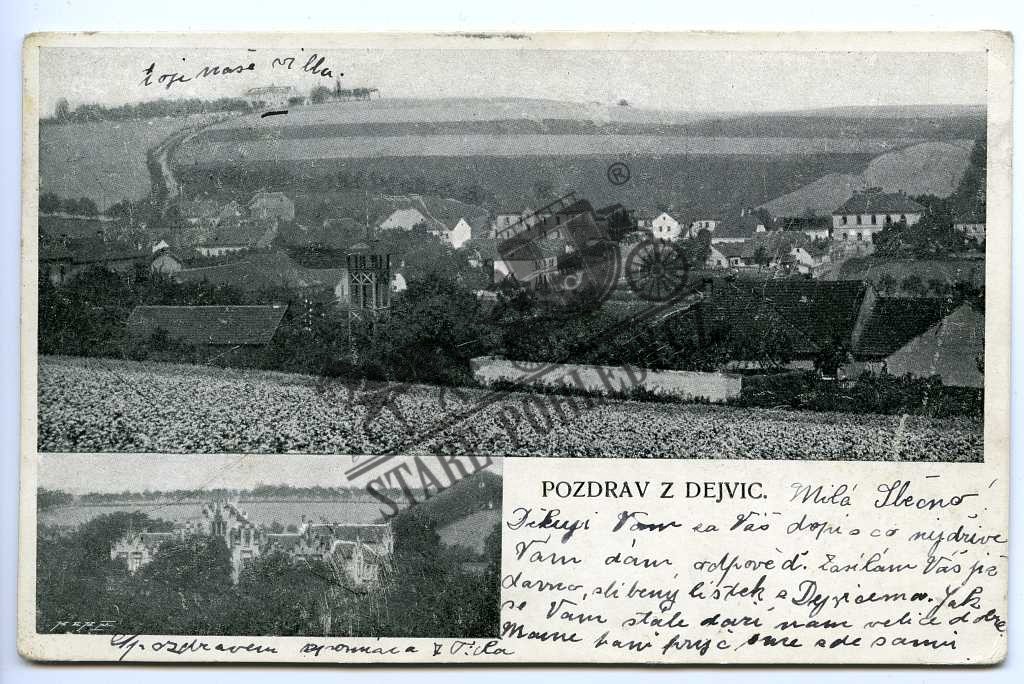 to je naše villa.
®
STARE-POHLEDY.CZ
POZDRAV Z DEJVIC. Milá Slečno!
Děkuji Vam za Váš dopis co nejdříve
Vám dám odpověď. Zasílám Váš již
davno, slibený listek z Dejvicema. Jak
se Vam stále daří nám velice dobře
Mame paní pryč sme zde sami
S pozdravem vzpomina